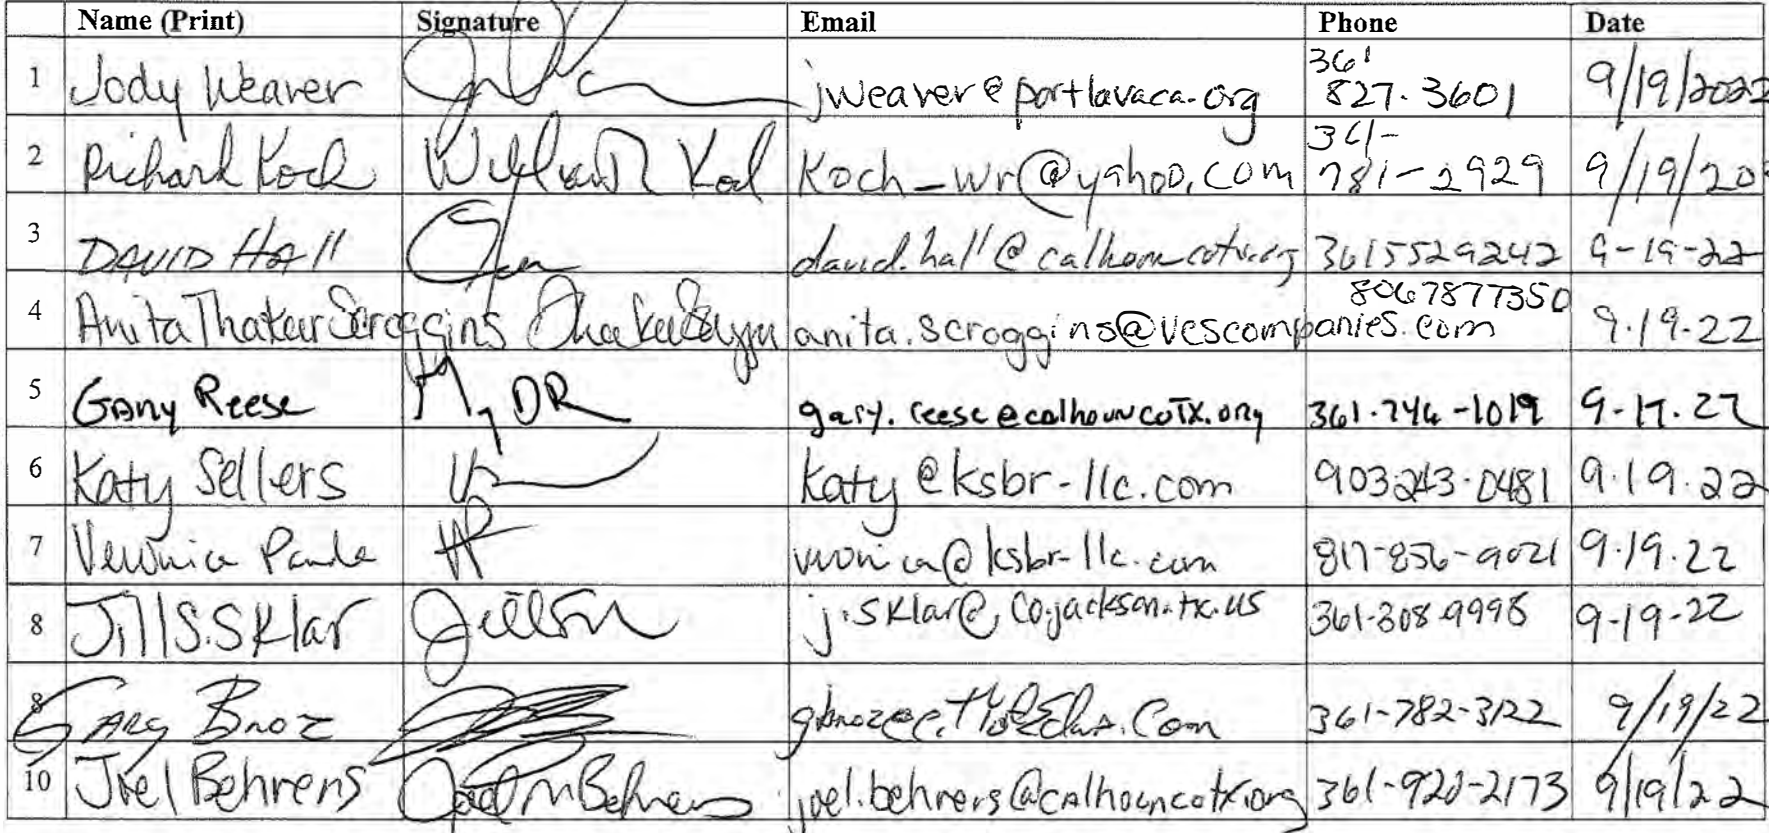 Name (Print) Signature Email Phone Date
1 Jody Weaver jweaver@portlavaca.org 361 827.3601 9/19/2022
2 Richard Koch William R Koch Koch_wr@yahoo.com 361- 781-2929 9/19/20
3 DAVID HAll david.hall@calhouncotx.org 3615529242 9-19-22
4 Anita Thakur Scroggins anita.scroggins@vescompanies.com 8067877350 9.19.22
5 GARY Reese gary.reese@calhouncoTX.org 361.746-1019 9-17.22
6 Katy Sellers katy@ksbr-llc.com 903-243-0481 9.19.22
7 Veronica veronica@ksbr-llc.com 817-856-9021 9.19.22
8 Jill S. Sklar j.sklar@co.jackson.tx.us 361-308-9998 9-19-22
8 GARy Broz 361-782-3122 9/19/22
10 Joel Behrens Joel M Behrens joel.behrens@calhouncotx.org 361-920-2173 9/19/22